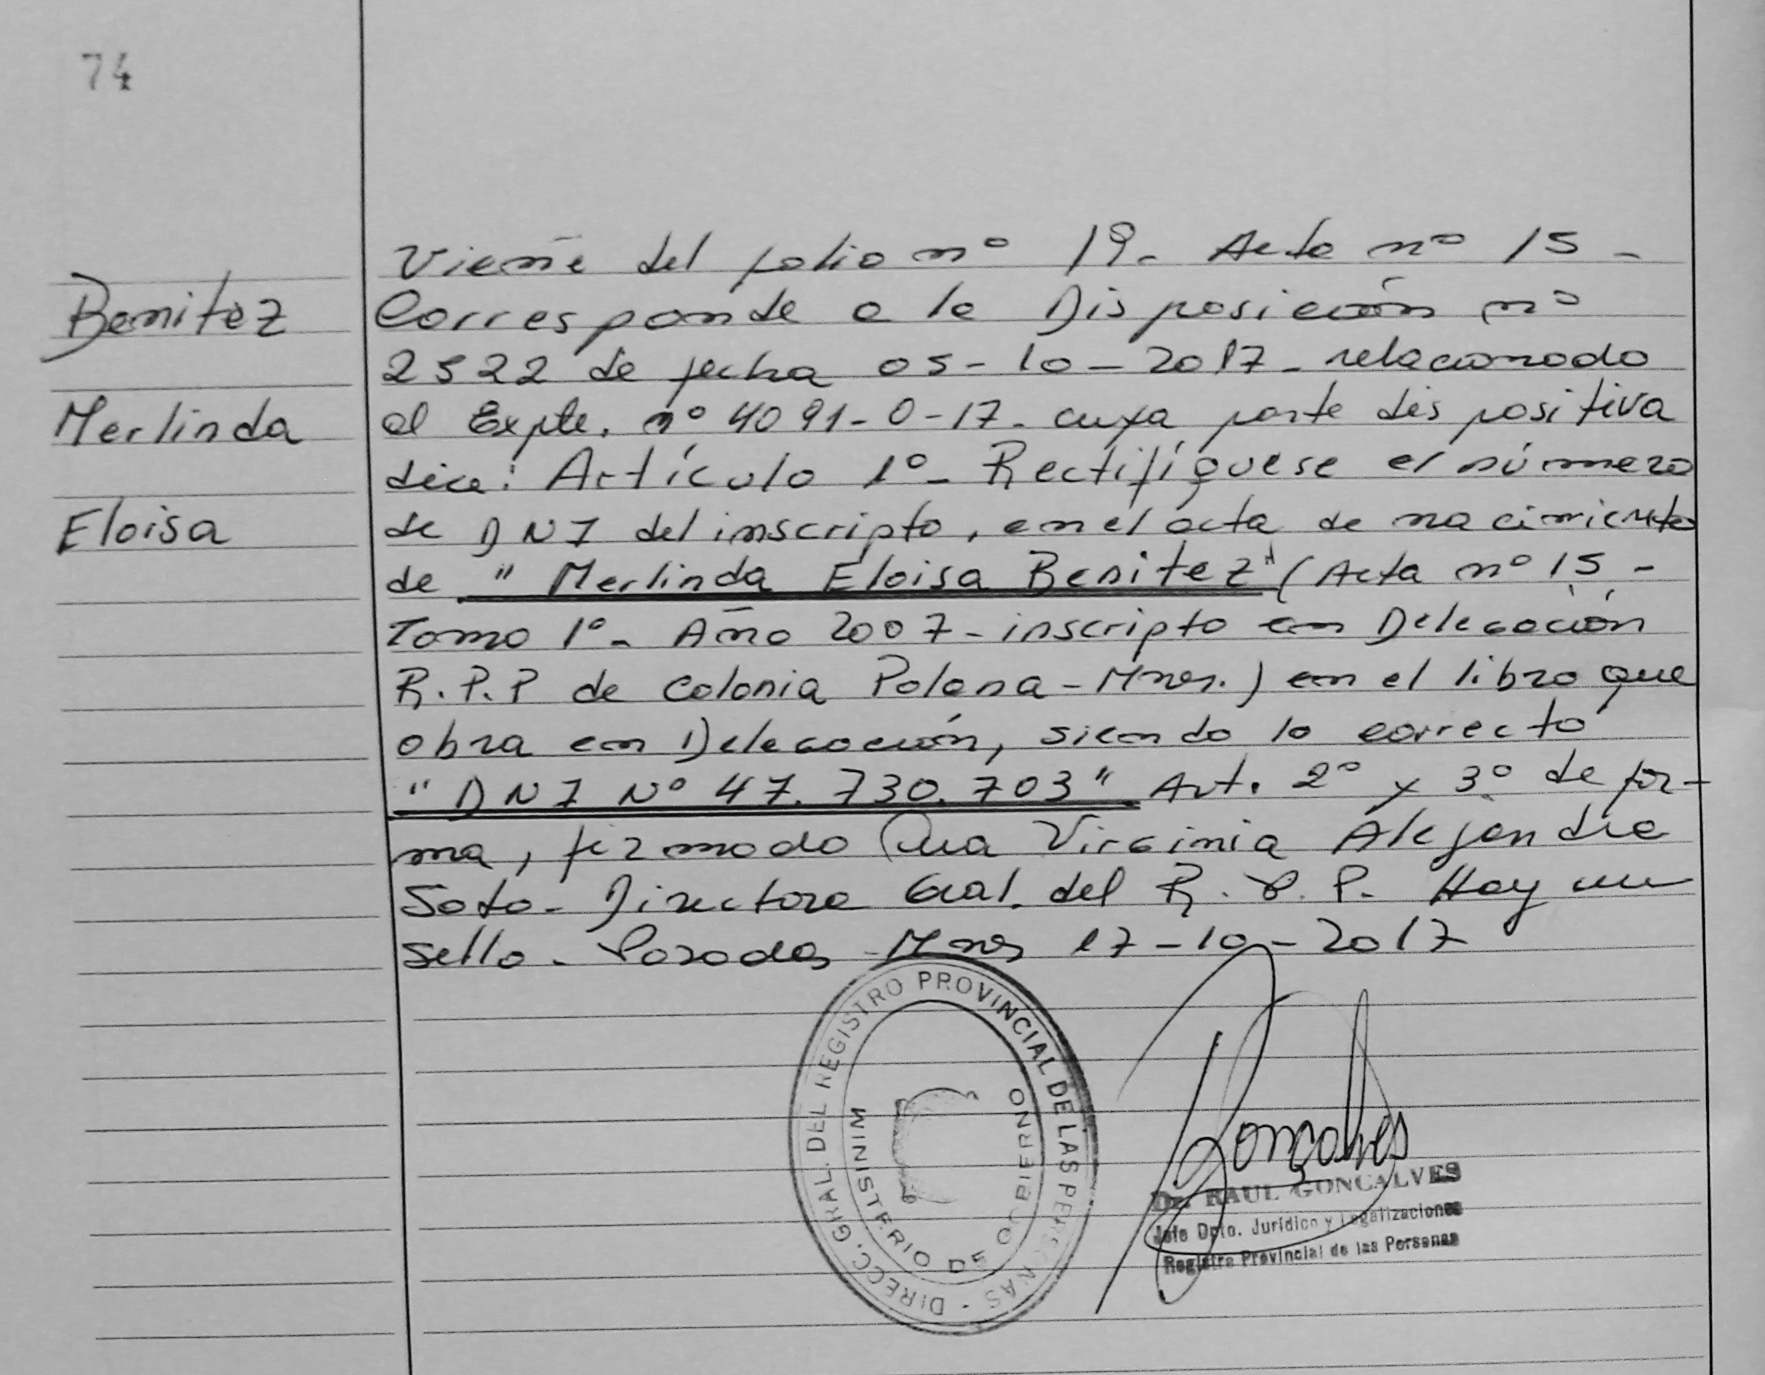 74
Benitez
Merlinda
Eloisa
Viene del folio nº 19. Acta nº 15 -
Corresponde a la Disposición nº
2522 de fecha 05-10-2017- relacionado
al Expte. nº 4091-0-17- cuya parte dispositiva
dice: Artículo 1º- Rectifíquese el número
de DNI del inscripto, en el acta de nacimiento
de "Merlinda Eloisa Benitez" (Acta nº 15 -
Tomo 1º- Año 2007- inscripto en Delegación
R.P.P de Colonia Polana-Mnes.) en el libro que
obra en Delegación, siendo lo correcto
"DNI Nº 47.730.703" Art. 2º y 3º de for-
ma, firmado Dra Virginia Alejandra
Soto- Directora Gral. del R.P.P. Hay un
sello. Posadas Mnes 17-10-2017
DIRECC. GRAL. DEL REGISTRO PROVINCIAL DE LAS PERSONAS -
MINISTERIO DE GOBIERNO
Gonçalves
Dr. RAUL GONCALVES
Jefe Dpto. Jurídico y Legalizaciones
Registro Provincial de las Personas